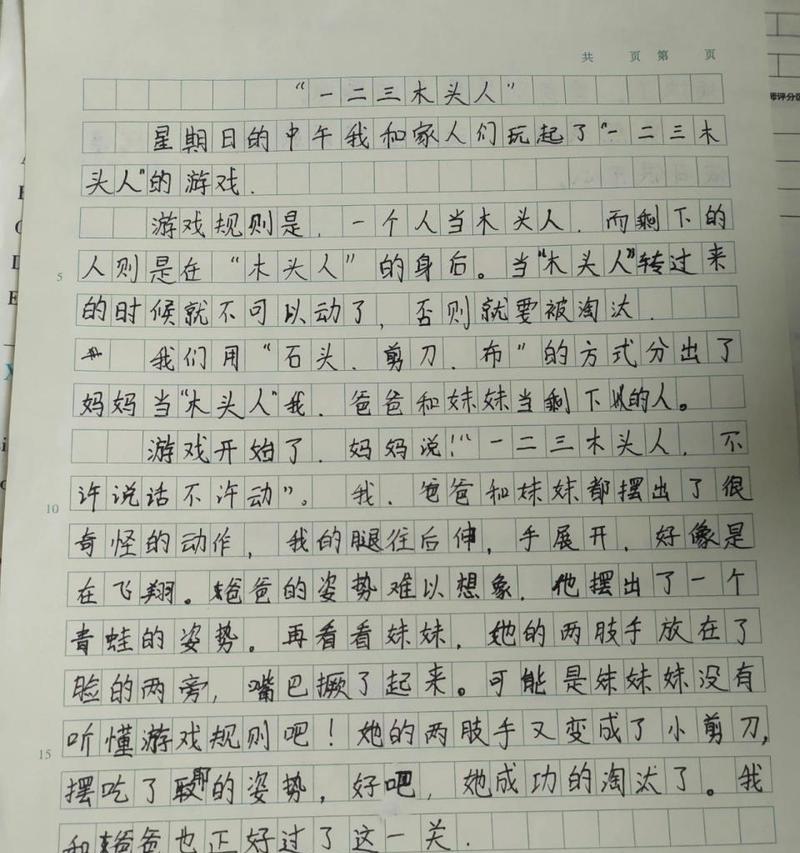 共 页 第 页
“一二三木头人”
星期日的中午我和家人们玩起了“一二三木
头人”的游戏.
游戏规则是.一个人当木头人.而剩下的
人则是在“木头人”的身后。当“木头人”转过来
5
的时候就不可以动了,否则就要被淘汰.
我们用“石头.剪刀.布”的方式分出了
妈妈当“木头人”我.爸爸和妹妹当剩下的人。
游戏开始了.妈妈说!“一二三木头人.不
许说话不许动”。我.爸爸和妹妹都摆出了很
10
奇怪的动作,我的腿往后伸,手展开.好像是
在飞翔。爸爸的姿势难以想象.他摆出了一个
青蛙的姿势。再看看妹妹.她的两肢手放在了
脸的两旁,嘴巴撅了起来。可能是妹妹妹没有
听懂游戏规则吧!她的两肢手又变成了小剪刀,
15
摆吃了耶的姿势,好吧,她成功的淘汰了。我
和爸爸也正好过了这一关.
师评分区